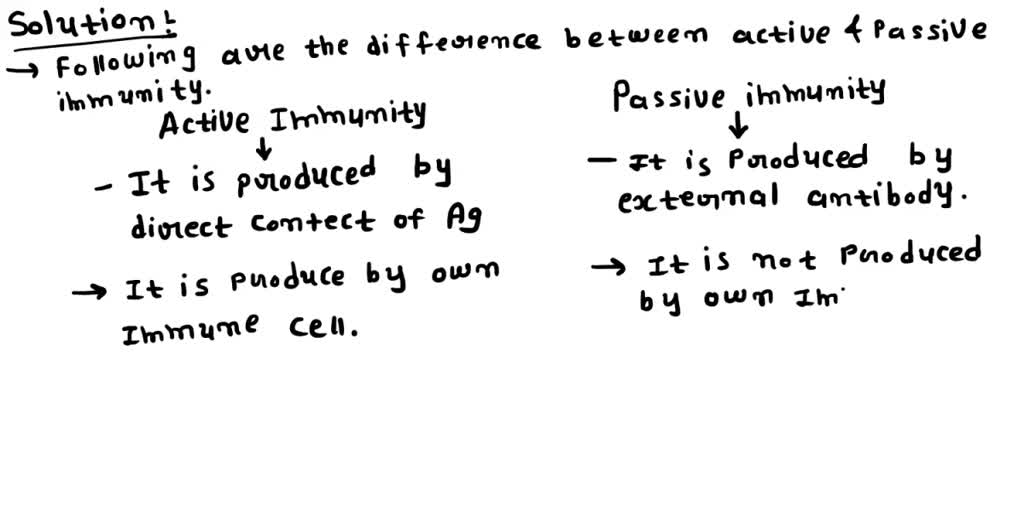 Solution:
→ Following are the difference between active & Passive
immunity.
Active Immunity
↓
- It is produced by
direct contect of Ag
→ It is produce by own
Immune cell.
Passive immunity
↓
- It is Produced by
external antibody.
→ It is not Produced
by own Im